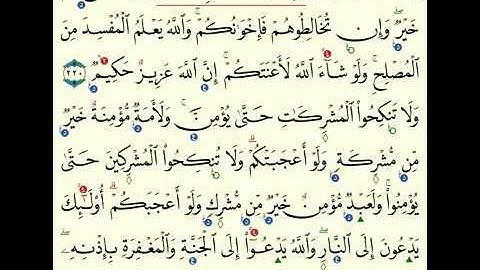 خَيْرٌ ۖ وَإِن تُخَالِطُوهُمْ فَإِخْوَانُكُمْ ۚ وَاللَّهُ يَعْلَمُ الْمُفْسِدَ مِنَ
الْمُصْلِحِ ۚ وَلَوْ شَاءَ اللَّهُ لَأَعْنَتَكُمْ ۚ إِنَّ اللَّهَ عَزِيزٌ حَكِيمٌ ٢٢٠
وَلَا تَنكِحُوا الْمُشْرِكَاتِ حَتَّىٰ يُؤْمِنَّ ۚ وَلَأَمَةٌ مُّؤْمِنَةٌ خَيْرٌ
مِّن مُّشْرِكَةٍ وَلَوْ أَعْجَبَتْكُمْ ۗ وَلَا تُنكِحُوا الْمُشْرِكِينَ حَتَّىٰ
يُؤْمِنُوا ۚ وَلَعَبْدٌ مُّؤْمِنٌ خَيْرٌ مِّن مُّشْرِكٍ وَلَوْ أَعْجَبَكُمْ ۗ أُولَٰئِكَ
يَدْعُونَ إِلَى النَّارِ ۖ وَاللَّهُ يَدْعُو إِلَى الْجَنَّةِ وَالْمَغْفِرَةِ بِإِذْنِهِ ۖ